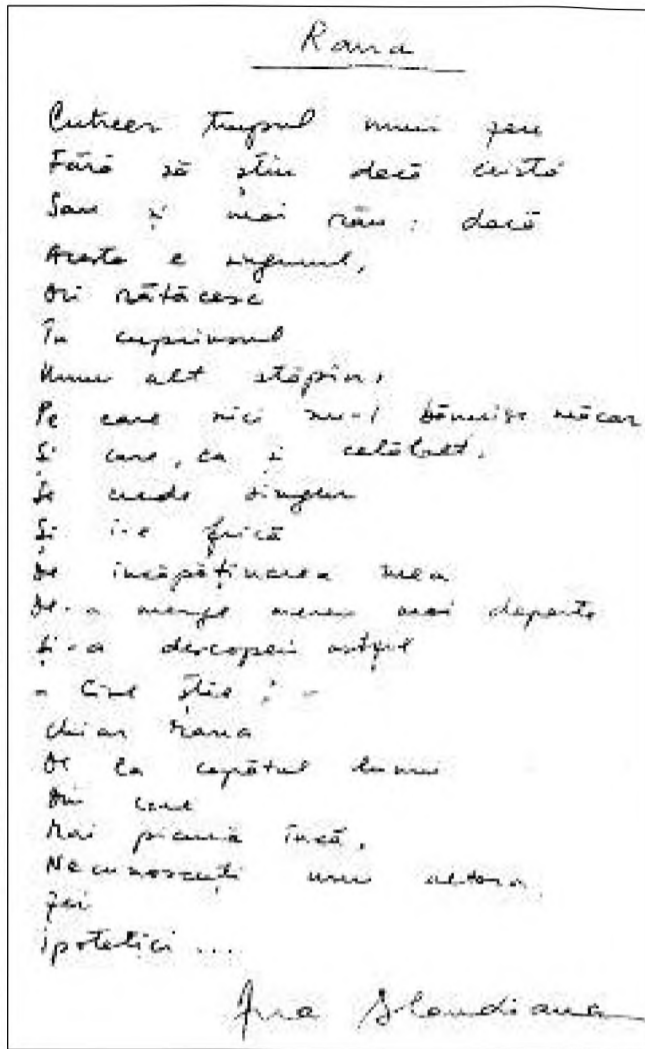 Rana
Cutreer trupul unui zeu
Fără să știu dacă există
Sau și mai rău: dacă
Acesta e singurul,
Ori rătăcesc
În cuprinsul
Unui alt stăpîn,
Pe care nici nu-l bănuise măcar
Și care, ca și celălalt,
Se crede singur
Și i-e frică
De încăpăținarea mea
De-a merge mereu mai departe
Și-a descoperi astfel
- Cine știe? -
Chiar rana
De la capătul lumii
Din care
Mai picură încă,
Necunoscuți unii altora,
Zei
ipotetici ....
Ana Blandiana